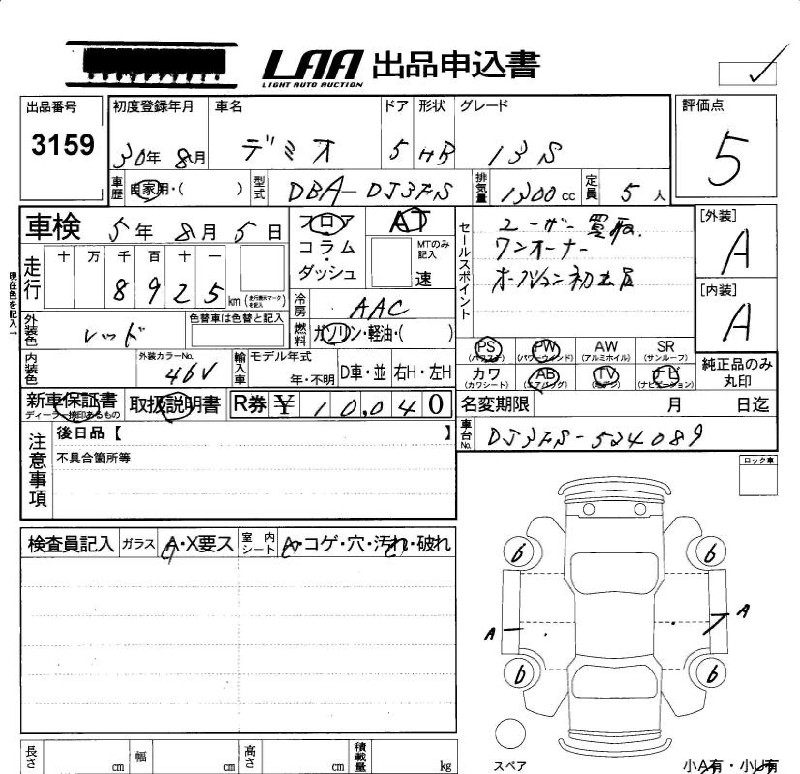 LAA 出品申込書
LIGHT AUTO AUCTION
出品番号 3159
初度登録年月 30年 8月
車名 デミオ
ドア 5
形状 HB
グレード 13S
評価点 5
車歴 自家用・( )
型式 DBA-DJ3FS
排気量 1300 cc
定員 5人
車検 5年 8月 5日
フロア
コラム・
ダッシュ
AT
MTのみ記入
速
セールスポイント
ユーザー買取
ワンオーナー
[外装] A
[内装] A
現在色を記入→
走行 十 万 千 百 十 一
8925km (走行表示マークを記入)
冷房 AAC
燃料 ガソリン・軽油・( )
外装色 レッド
色替車は色替と記入
内装色
外装カラーNo. 46V
輸入車 モデル年式
年・不明
D車・並
右H・左H
PS (パワステ)
PW (パワーウィンドウ)
AW (アルミホイル)
SR (サンルーフ)
カワ (カワシート)
AB (エアバッグ)
TV (モデン)
ナビ (ナビゲーション)
純正品のみ丸印
新車保証書
ディーラー捺印あるもの
取扱説明書
R券 ¥ 10,040
名変期限 月 日迄
車台No. DJ3FS-524089
注意事項
後日品【 】
不具合箇所等
ロック車
検査員記入
ガラス A・X要ス
室内シート A・コゲ・穴・汚れ・破れ
6
6
A
A
6
6
スペア
小A有・小U有
長さ cm
幅 cm
高さ cm
積載量 kg